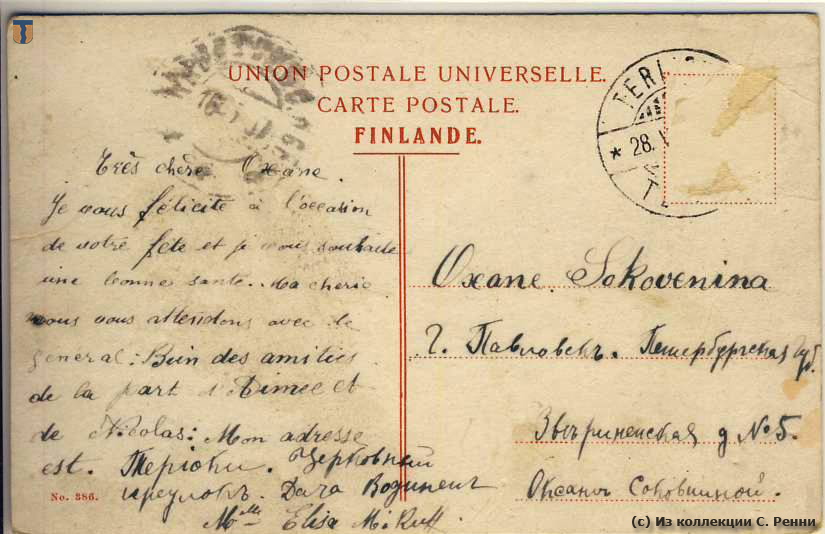 UNION POSTALE UNIVERSELLE.
CARTE POSTALE.
FINLANDE.
TERI
28.
Très chère Oxane.
Je vous félicite à l'occasion
de votre fete et je vous souhaite
une bonne santé. Ma cherie
nous vous attendons avec le
général. Bien des amities
de la part d'Aimee et
de Nicolas. Mon adresse
est. Терiоки. Церковный
Дача
Mlle Elisa M. Ruff.
No. 386.
Oxane Sokovenina
г. Павловскъ. Петербургская губ.
Звѣринская д №5.
Оксанѣ Соковниной.
(c) Из коллекции С. Ренни